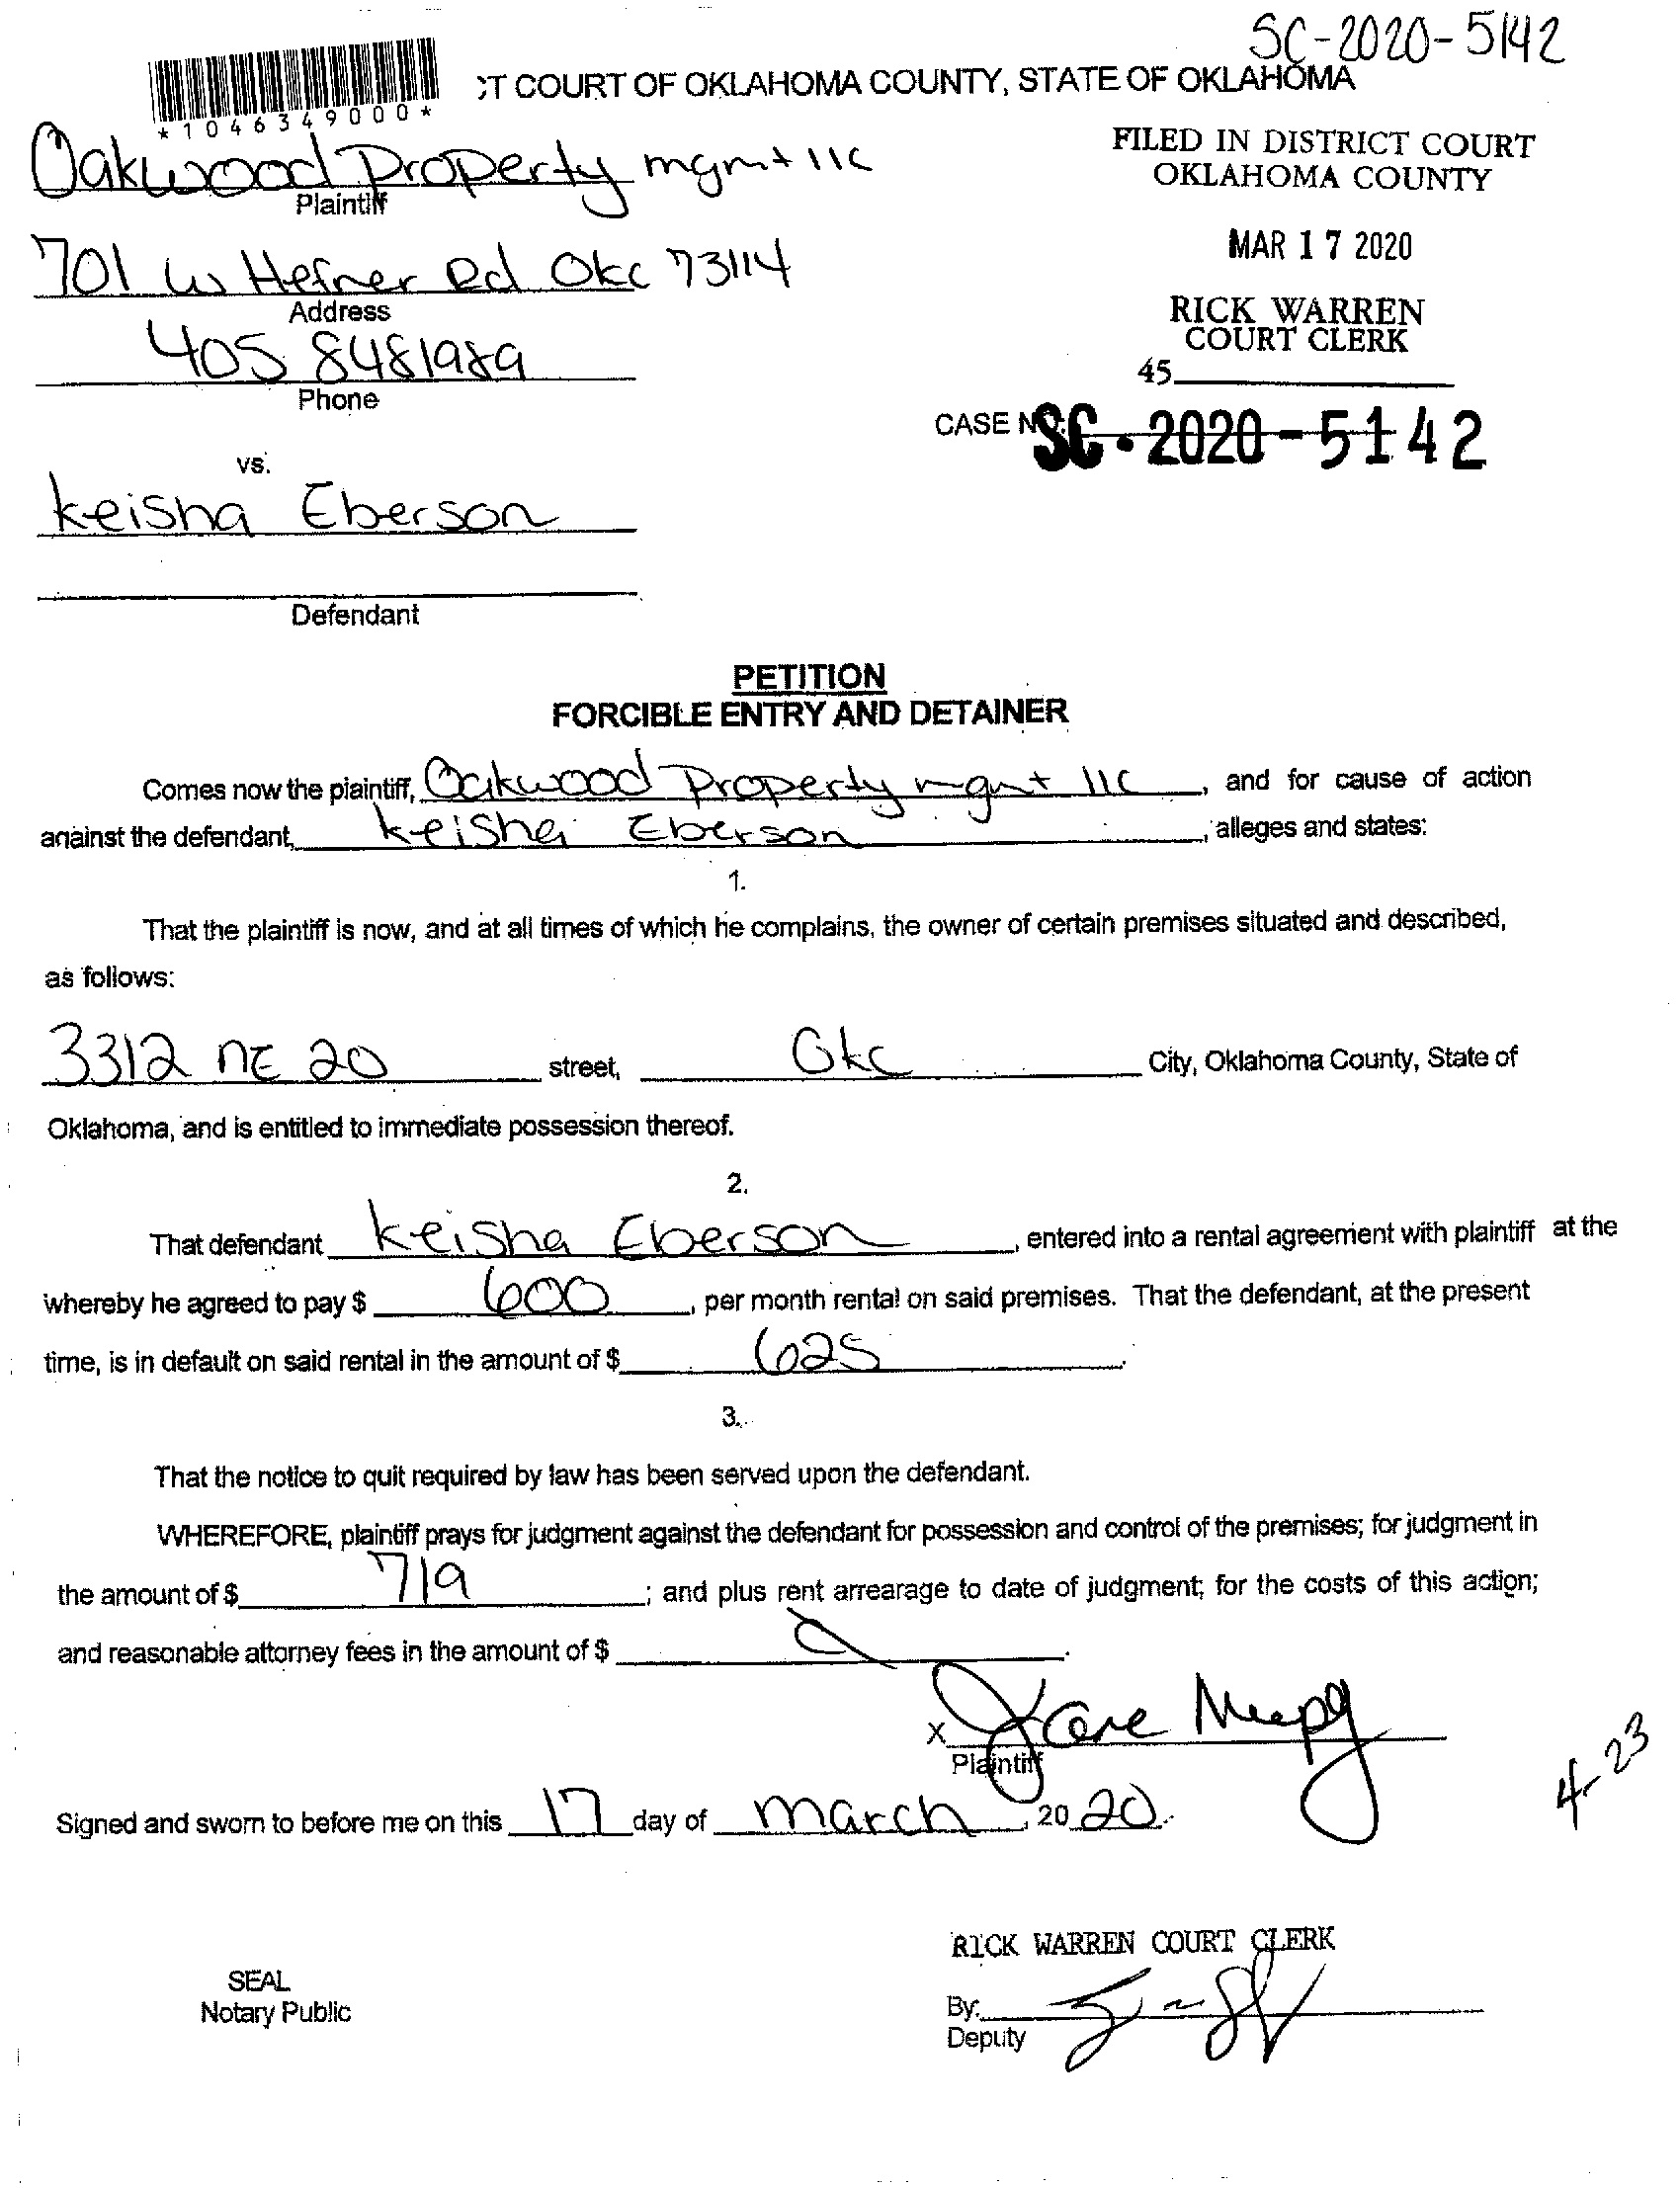 SC-2020-5142
CT COURT OF OKLAHOMA COUNTY, STATE OF OKLAHOMA
*1046349000*
FILED IN DISTRICT COURT
OKLAHOMA COUNTY
Oakwood Property mgmt llc
Plaintiff
MAR 17 2020
701 W Hefner Rd Okc 73114
Address
RICK WARREN
COURT CLERK
405 8481989
45
Phone
CASE NO. SC-2020-5142
vs.
Keisha Eberson
Defendant
PETITION
FORCIBLE ENTRY AND DETAINER
Comes now the plaintiff, Oakwood Property mgmt llc, and for cause of action
against the defendant, Keisha Eberson, alleges and states:
1.
That the plaintiff is now, and at all times of which he complains, the owner of certain premises situated and described,
as follows:
3312 NE 20 street, Okc City, Oklahoma County, State of
Oklahoma, and is entitled to immediate possession thereof.
2.
That defendant Keisha Eberson, entered into a rental agreement with plaintiff at the
whereby he agreed to pay $ 600, per month rental on said premises. That the defendant, at the present
time, is in default on said rental in the amount of $ 625.
3.
That the notice to quit required by law has been served upon the defendant.
WHEREFORE, plaintiff prays for judgment against the defendant for possession and control of the premises; for judgment in
the amount of $ 719; and plus rent arrearage to date of judgment; for the costs of this action;
and reasonable attorney fees in the amount of $
X
Plaintiff
4-23
Signed and sworn to before me on this 17 day of march, 2020.
RICK WARREN COURT CLERK
SEAL
Notary Public
By:
Deputy